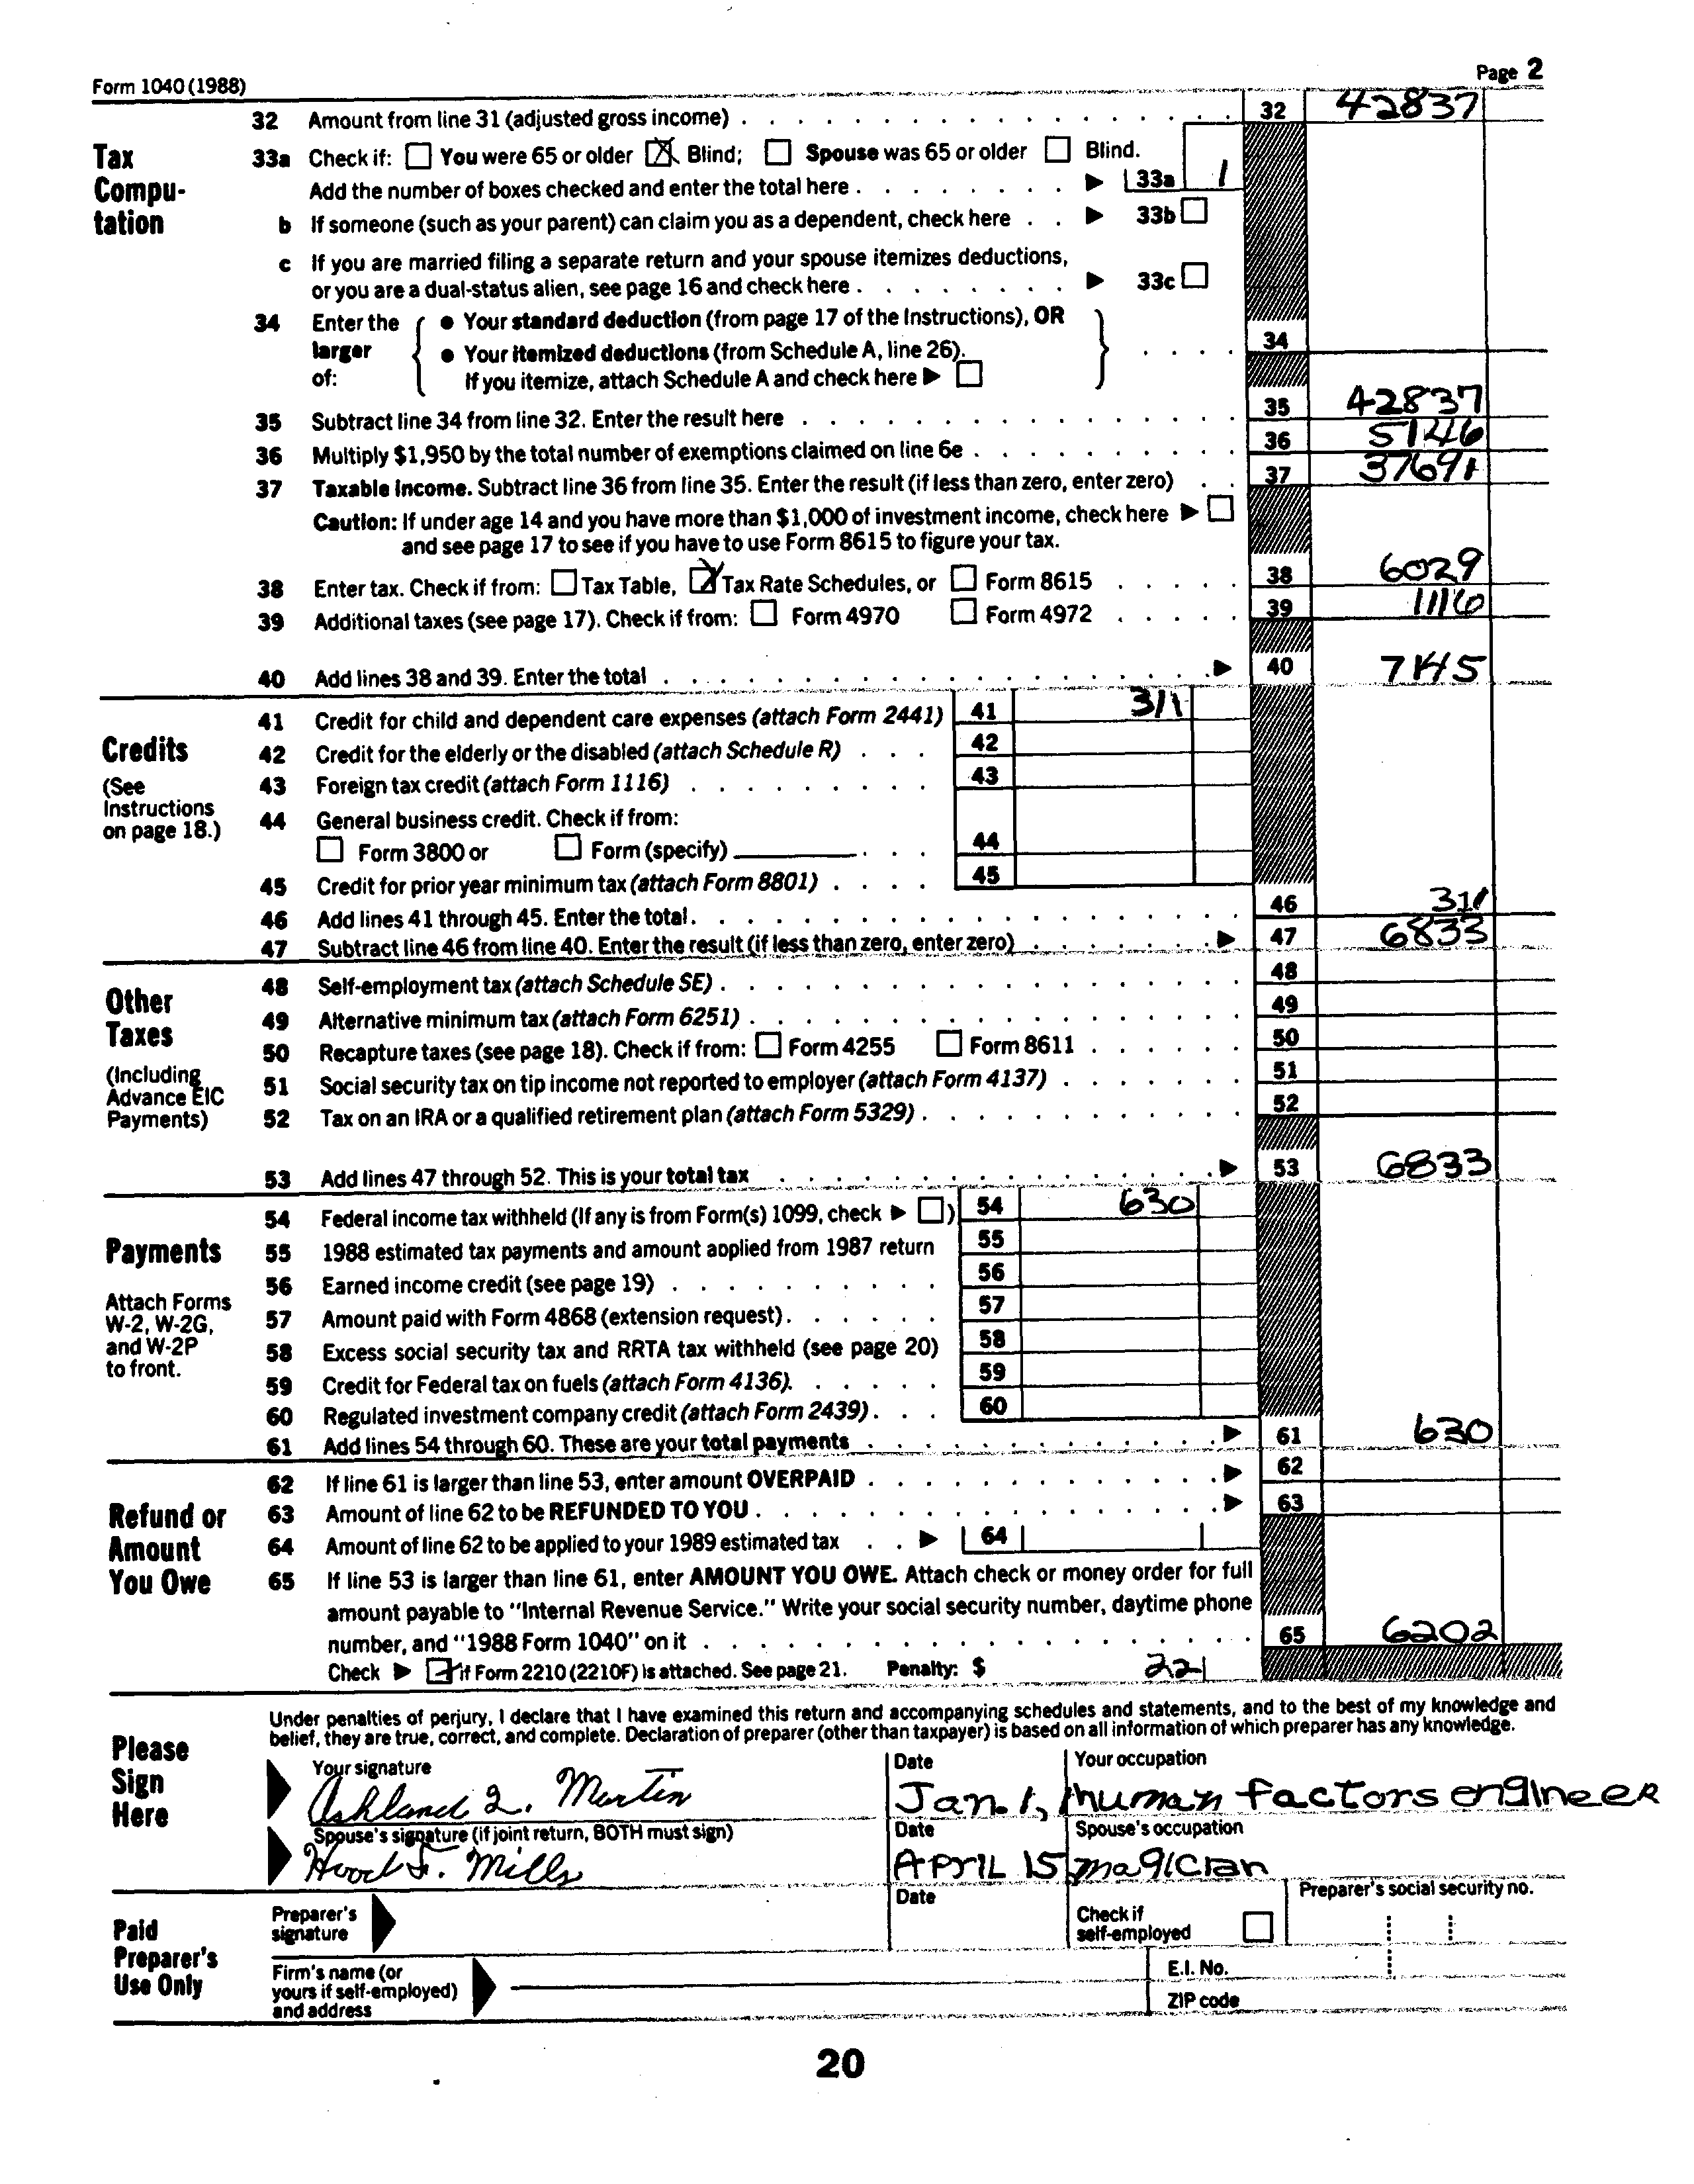 Form 1040 (1988) Page 2
32 Amount from line 31 (adjusted gross income) 32 42837
Tax Compu-tation
33a Check if: You were 65 or older Blind; Spouse was 65 or older Blind.
Add the number of boxes checked and enter the total here 33a 1
b If someone (such as your parent) can claim you as a dependent, check here 33b
c If you are married filing a separate return and your spouse itemizes deductions,
or you are a dual-status alien, see page 16 and check here 33c
34 Enter the larger of:
• Your standard deduction (from page 17 of the Instructions), OR
• Your itemized deductions (from Schedule A, line 26).
If you itemize, attach Schedule A and check here
34
35 Subtract line 34 from line 32. Enter the result here 35 42837
36 Multiply $1,950 by the total number of exemptions claimed on line 6e 36 5146
37 Taxable income. Subtract line 36 from line 35. Enter the result (if less than zero, enter zero) 37 37691
Caution: If under age 14 and you have more than $1,000 of investment income, check here
and see page 17 to see if you have to use Form 8615 to figure your tax.
38 Enter tax. Check if from: Tax Table, Tax Rate Schedules, or Form 8615 38 6029
39 Additional taxes (see page 17). Check if from: Form 4970 Form 4972 39 1116
40 Add lines 38 and 39. Enter the total 40 7145
Credits
(See Instructions on page 18.)
41 Credit for child and dependent care expenses (attach Form 2441) 41 311
42 Credit for the elderly or the disabled (attach Schedule R) 42
43 Foreign tax credit (attach Form 1116) 43
44 General business credit. Check if from:
Form 3800 or Form (specify) 44
45 Credit for prior year minimum tax (attach Form 8801) 45
46 Add lines 41 through 45. Enter the total. 46 311
47 Subtract line 46 from line 40. Enter the result (if less than zero, enter zero) 47 6833
Other Taxes
(Including Advance EIC Payments)
48 Self-employment tax (attach Schedule SE) 48
49 Alternative minimum tax (attach Form 6251) 49
50 Recapture taxes (see page 18). Check if from: Form 4255 Form 8611 50
51 Social security tax on tip income not reported to employer (attach Form 4137) 51
52 Tax on an IRA or a qualified retirement plan (attach Form 5329) 52
53 Add lines 47 through 52. This is your total tax 53 6833
Payments
Attach Forms W-2, W-2G, and W-2P to front.
54 Federal income tax withheld (If any is from Form(s) 1099, check ) 54 630
55 1988 estimated tax payments and amount applied from 1987 return 55
56 Earned income credit (see page 19) 56
57 Amount paid with Form 4868 (extension request) 57
58 Excess social security tax and RRTA tax withheld (see page 20) 58
59 Credit for Federal tax on fuels (attach Form 4136). 59
60 Regulated investment company credit (attach Form 2439) 60
61 Add lines 54 through 60. These are your total payments 61 630
Refund or Amount You Owe
62 If line 61 is larger than line 53, enter amount OVERPAID 62
63 Amount of line 62 to be REFUNDED TO YOU 63
64 Amount of line 62 to be applied to your 1989 estimated tax 64
65 If line 53 is larger than line 61, enter AMOUNT YOU OWE. Attach check or money order for full
amount payable to "Internal Revenue Service." Write your social security number, daytime phone
number, and "1988 Form 1040" on it 65 6202
Check if Form 2210 (2210F) is attached. See page 21. Penalty: $ 221
Please Sign Here
Under penalties of perjury, I declare that I have examined this return and accompanying schedules and statements, and to the best of my knowledge and
belief, they are true, correct, and complete. Declaration of preparer (other than taxpayer) is based on all information of which preparer has any knowledge.
Your signature Date Your occupation
Ashland Q. Martin Jan. 1, human factors engineer
Spouse's signature (if joint return, BOTH must sign) Date Spouse's occupation
Mills APRIL 15 magician
Paid Preparer's Use Only
Preparer's signature Date Check if self-employed Preparer's social security no.
Firm's name (or yours if self-employed) and address E.I. No.
ZIP code
20